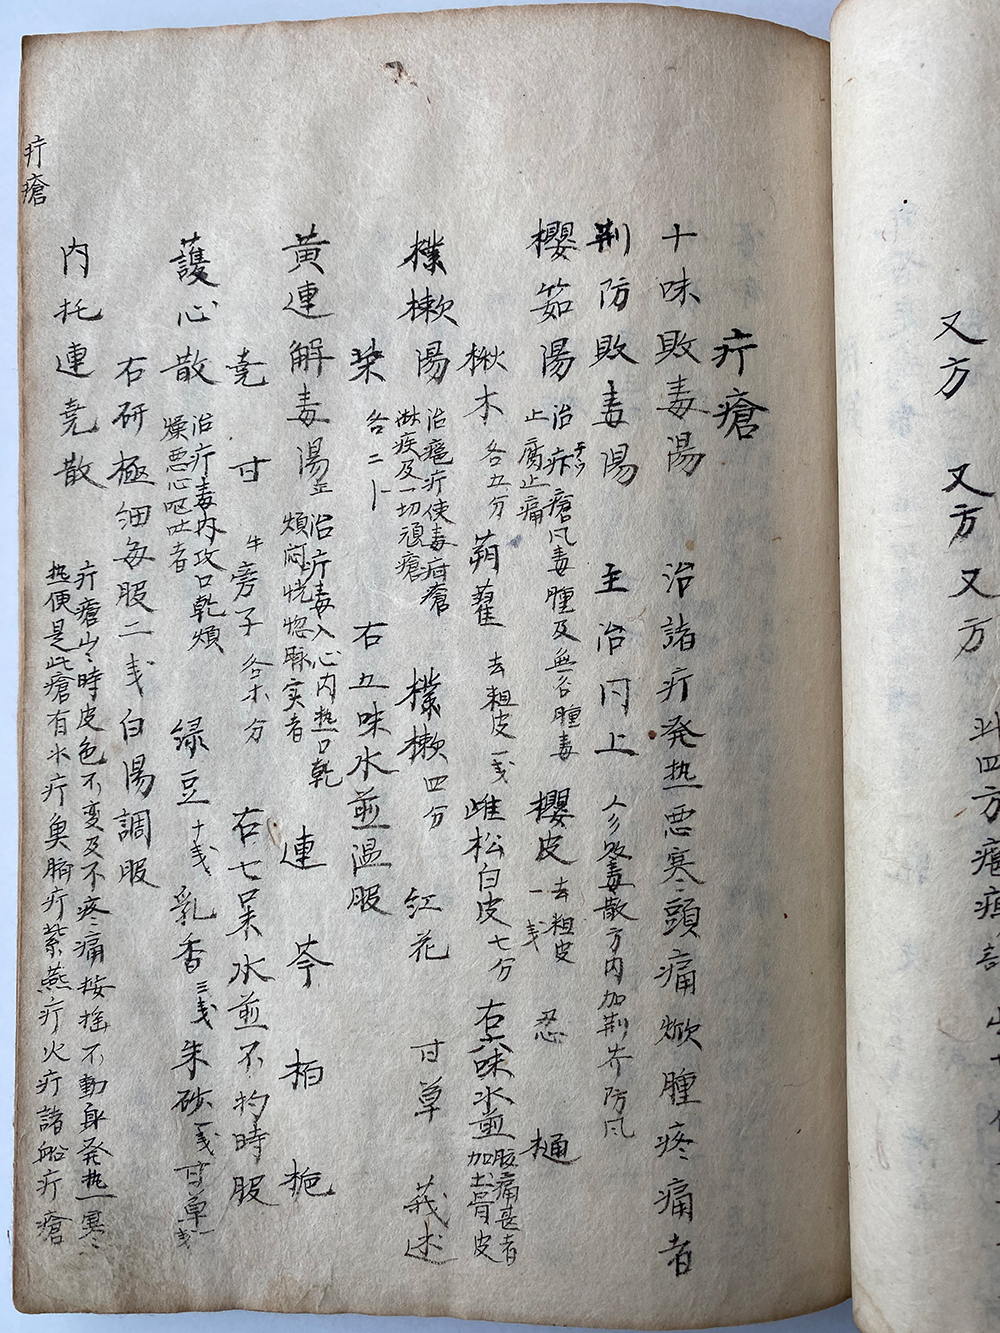 又方
又方
又方
疔瘡
十味敗毒湯 治諸疔発热悪寒頭痛焮腫疼痛者
荆防敗毒陽 主治同上 人参敗毒散方内加荆芥防风
櫻茹陽 治疔瘡风毒腫及無名腫毒 止腐止痛 櫻皮 去粗皮一戋 忍 樋
楸木 各五分 蒴藋 去粗皮一戋 雌松白皮七分 右六味水煎 胺痛甚者加土骨皮
樸樕陽 治瘢疔使毒疳瘡 淋疾及一切頑瘡 樸樕四分 红花 甘草 莪述
柴 各二卜 右五味水煎温服
黄連解毒湯 治疔毒入心内热口乾 煩悶恍惚脉实者 連 芩 柏 梔
尭 甘 牛旁子 各六分 右七味水煎不拘時服
護心散 治疔毒内攻口乾煩 燥悪心呕吐者 绿豆十戋 乳香三戋 朱砂一戋 甘草一戋
右研極细每服二戋白陽調服
内托連尭散 疔瘡出時皮色不变及不疼痛按摇不動身発热寒
热便是此瘡有水疔魚臍疔紫燕疔火疔諸船疔瘡
疔瘡